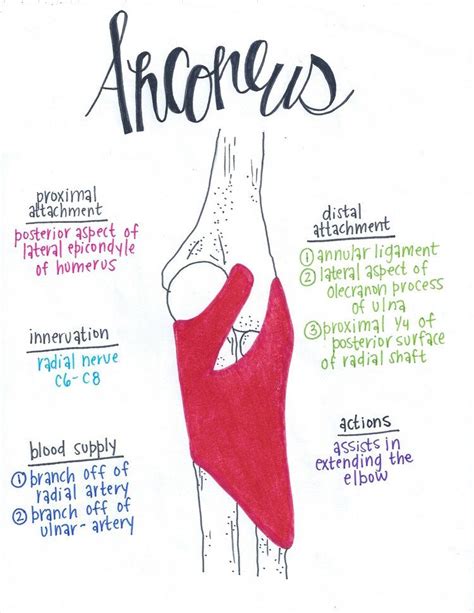 Anconeus
proximal
attachment
posterior aspect of
lateral epicondyle
of humerus
innervation
radial nerve
C6-C8
blood supply
① branch off of
radial artery
② branch off of
ulnar-artery
distal
attachment
① annular ligament
② lateral aspect of
olecranon process
of ulna
③ proximal 1/4 of
posterior surface
of radial shaft
actions
assists in
extending the
elbow